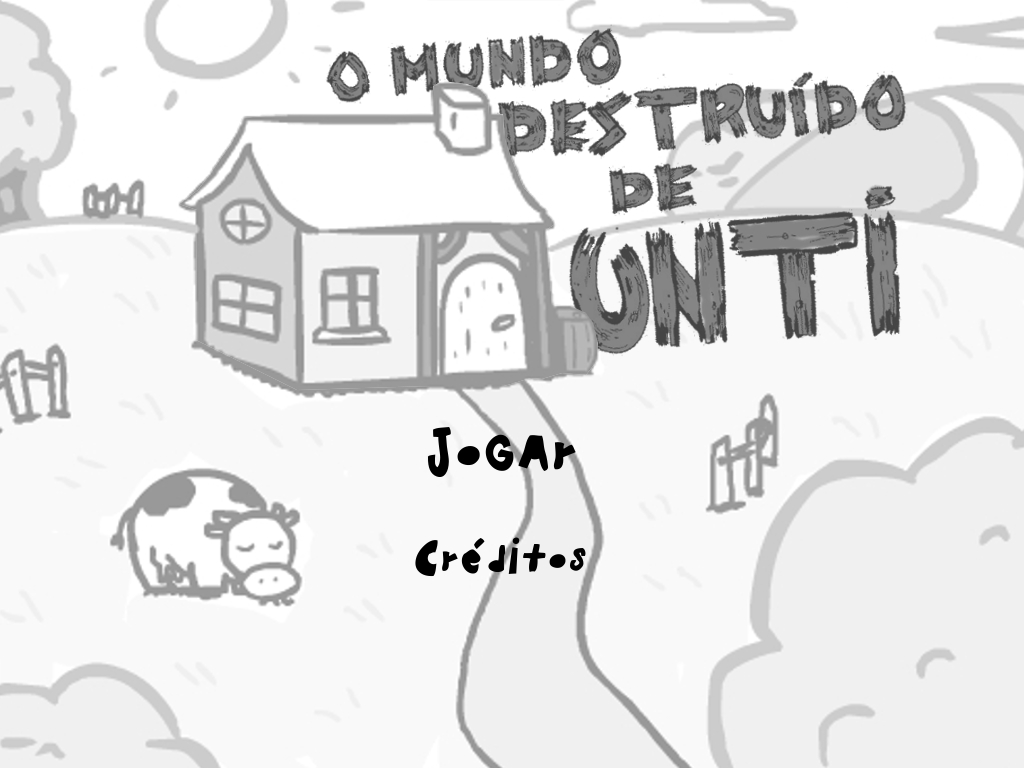 O MUNDO
DESTRUÍDO
DE
UNTI
JOGAr
Créditos